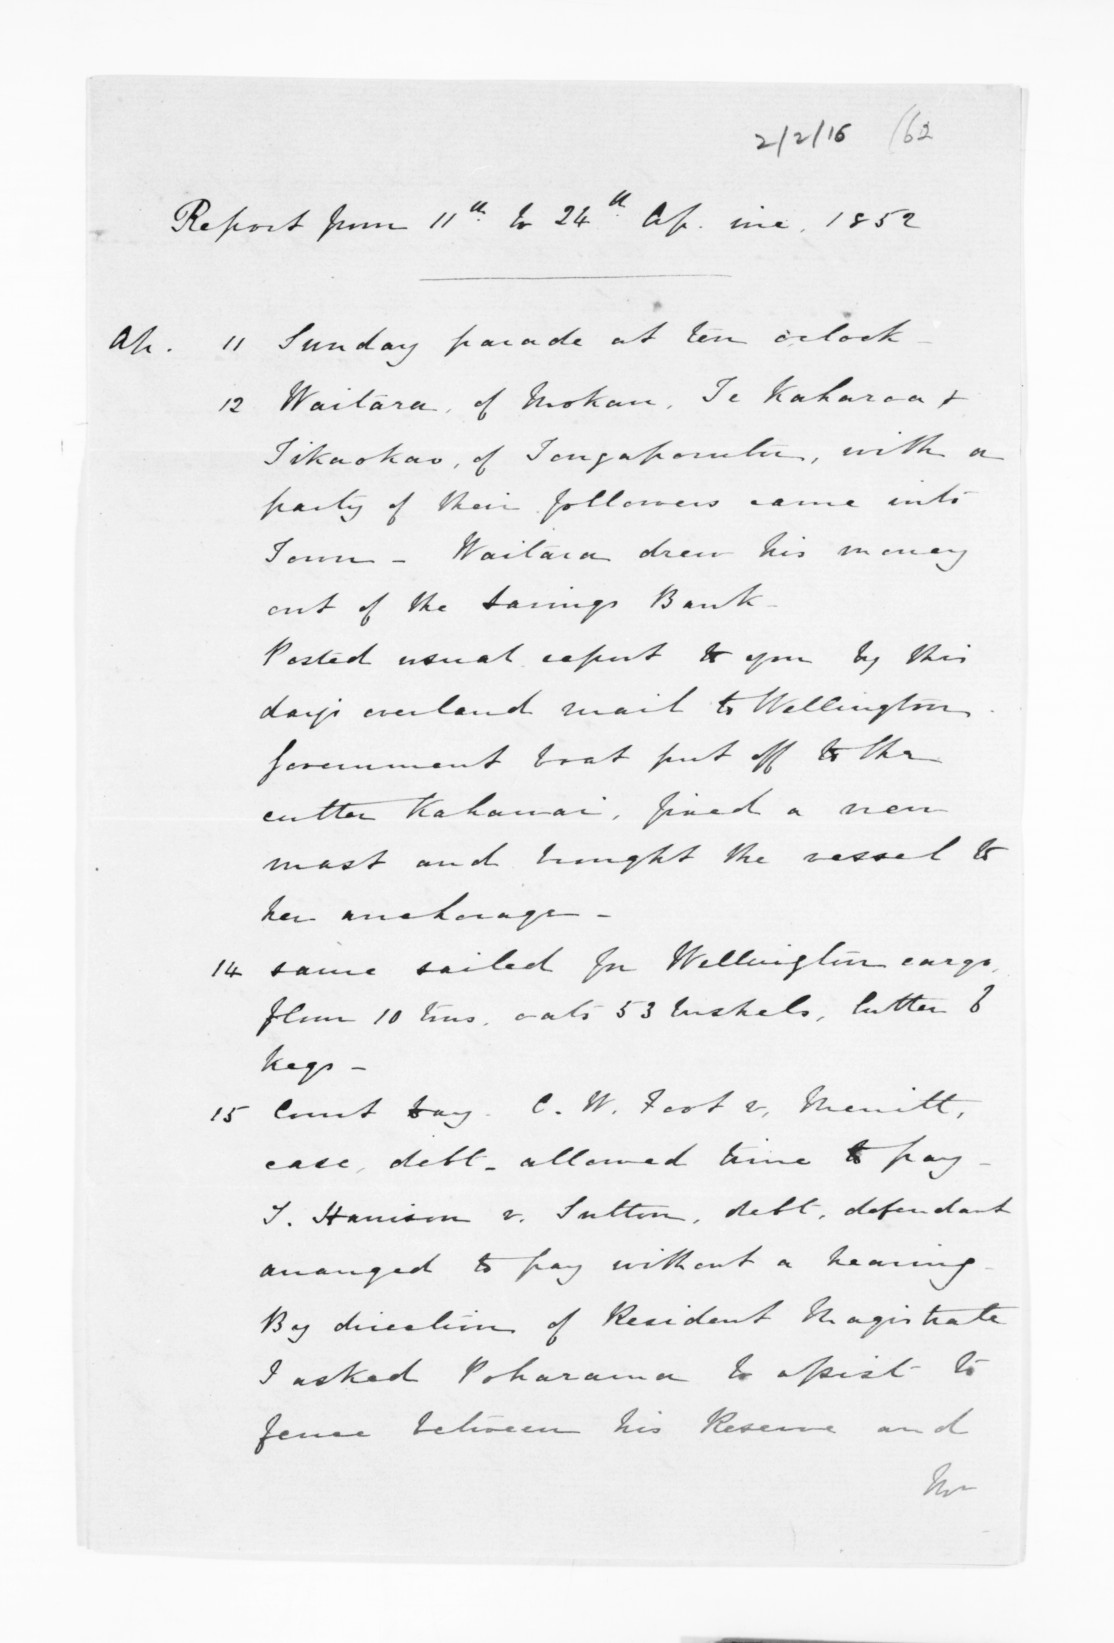 2/2/16 (62
Report from 11th to 24th Ap. inc. 1852
Ap. 11 Sunday parade at ten o'clock -
12 Waitara, of Mokau, Te Kaharoa &
Tikaokao, of Tongaporutu, with a
party of their followers came into
Town - Waitara drew his money
out of the Savings Bank -
Posted usual report to you by this
day's overland mail to Wellington.
Government boat put off to the
cutter Kahawai, fixed a new
mast and brought the vessel to
her anchorage -
14 same sailed for Wellington cargo,
flour 10 tons, oats 53 bushels, butter 6
kegs -
15 Court day - C. W. Foot v. Merritt,
case, debt - allowed time to pay -
T. Harrison v. Sutton, debt, defendant
arranged to pay without a hearing -
By direction of Resident Magistrate
I asked Poharama to assist to
fence between his Reserve and
Mr